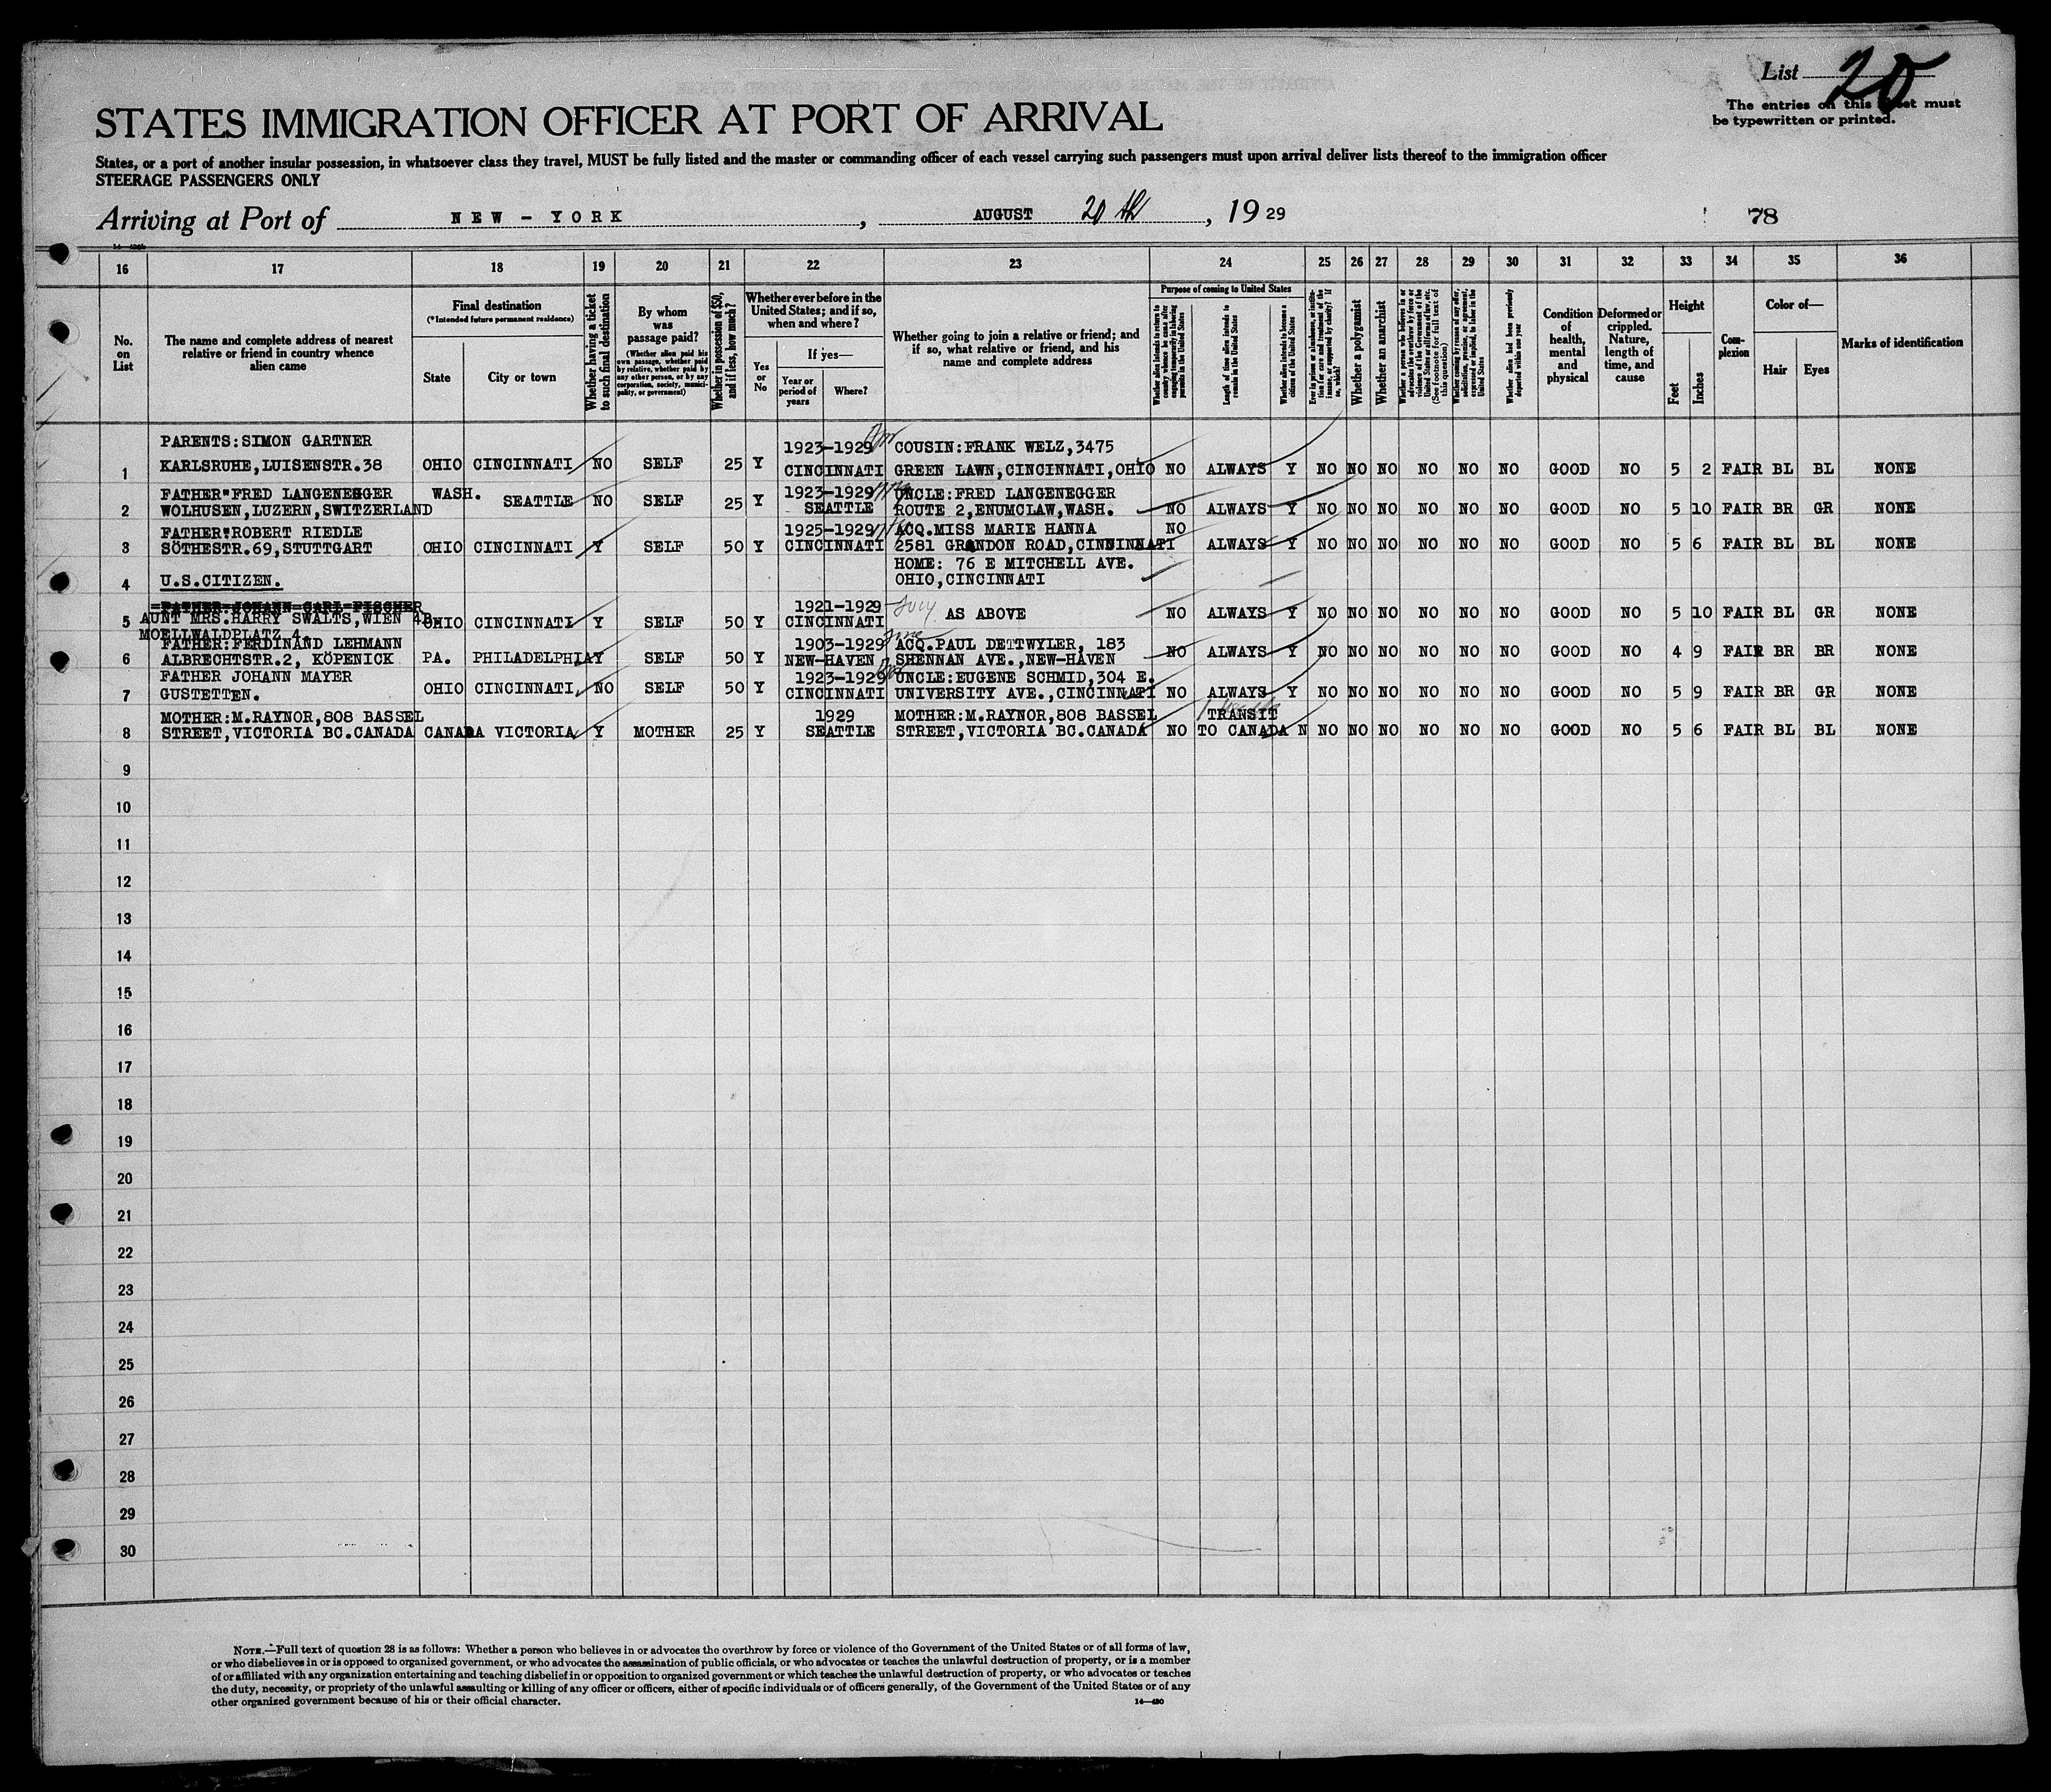 List 20
The entries on this sheet must
be typewritten or printed.
STATES IMMIGRATION OFFICER AT PORT OF ARRIVAL
States, or a port of another insular possession, in whatsoever class they travel, MUST be fully listed and the master or commanding officer of each vessel carrying such passengers must upon arrival deliver lists thereof to the immigration officer
STEERAGE PASSENGERS ONLY
Arriving at Port of NEW-YORK, AUGUST 20th, 1929
78
16 17 18 19 20 21 22 23 24 25 26 27 28 29 30 31 32 33 34 35 36
No. on List
The name and complete address of nearest relative or friend in country whence alien came
Final destination
(*Intended future permanent residence)
State
City or town
Whether having a ticket to such final destination
By whom was passage paid?
(Whether alien paid his own passage, whether paid by relative, whether paid by any other person, or by any corporation, society, municipality, or government)
Whether in possession of $50, and if less, how much?
Whether ever before in the United States; and if so, when and where?
Yes or No
If yes—
Year or period of years
Where?
Whether going to join a relative or friend; and if so, what relative or friend, and his name and complete address
Purpose of coming to United States
Whether alien intends to return to country whence he came after engaging temporarily in laboring pursuits in the United States
Length of time alien intends to remain in the United States
Whether alien intends to become a citizen of the United States
Whether a polygamist
Whether an anarchist
(See footnote for full text of this question)
Whether alien had been previously deported within one year
Condition of health, mental and physical
Deformed or crippled. Nature, length of time, and cause
Height
Feet
Inches
Complexion
Color of—
Hair
Eyes
Marks of identification
1 PARENTS:SIMON GARTNER
KARLSRUHE,LUISENSTR.38 OHIO CINCINNATI NO SELF 25 Y 1923-1929 CINCINNATI COUSIN:FRANK WELZ,3475
GREEN LAWN,CINCINNATI,OHIO NO ALWAYS Y NO NO NO NO NO NO GOOD NO 5 2 FAIR BL BL NONE
2 FATHER"FRED LANGENEGGER
WOLHUSEN,LUZERN,SWITZERLAND WASH. SEATTLE NO SELF 25 Y 1923-1929 SEATTLE UNCLE:FRED LANGENEGGER
ROUTE 2,ENUMCLAW,WASH. NO ALWAYS Y NO NO NO NO NO NO GOOD NO 5 10 FAIR BR GR NONE
3 FATHER:ROBERT RIEDLE
SÖTHESTR.69,STUTTGART OHIO CINCINNATI Y SELF 50 Y 1925-1929 CINCINNATI ACQ.MISS MARIE HANNA
2581 GRANDON ROAD,CINCINNATI NO ALWAYS Y NO NO NO NO NO NO GOOD NO 5 6 FAIR BL BL NONE
4 U.S.CITIZEN. HOME: 76 E MITCHELL AVE.
OHIO,CINCINNATI
5 FATHER:JOHANN CARL FISCHER
AUNT MRS.HARRY SWALTS,WIEN 4B.
MOELLWALDPLATZ 4. OHIO CINCINNATI Y SELF 50 Y 1921-1929 July CINCINNATI AS ABOVE NO ALWAYS Y NO NO NO NO NO NO GOOD NO 5 10 FAIR BL GR NONE
6 FATHER:FERDINAND LEHMANN
ALBRECHTSTR.2, KÖPENICK PA. PHILADELPHIA Y SELF 50 Y 1903-1929 June NEW-HAVEN ACQ.PAUL DETTWYLER, 183
SHENNAN AVE.,NEW-HAVEN NO ALWAYS Y NO NO NO NO NO NO GOOD NO 4 9 FAIR BR BR NONE
7 FATHER JOHANN MAYER
GUSTETTEN. OHIO CINCINNATI NO SELF 50 Y 1923-1929 CINCINNATI UNCLE:EUGENE SCHMID,304 E.
UNIVERSITY AVE.,CINCINNATI NO ALWAYS Y NO NO NO NO NO NO GOOD NO 5 9 FAIR BR GR NONE
8 MOTHER:M.RAYNOR,808 BASSEL
STREET,VICTORIA BC.CANADA CANADA VICTORIA Y MOTHER 25 Y 1929 SEATTLE MOTHER:M.RAYNOR,808 BASSEL
STREET,VICTORIA BC.CANADA NO TRANSIT TO CANADA N NO NO NO NO NO NO GOOD NO 5 6 FAIR BL BL NONE
9
10
11
12
13
14
15
16
17
18
19
20
21
22
23
24
25
26
27
28
29
30
NOTE.—Full text of question 28 is as follows: Whether a person who believes in or advocates the overthrow by force or violence of the Government of the United States or of all forms of law,
or who disbelieves in or is opposed to organized government, or who advocates the assassination of public officials, or who advocates or teaches the unlawful destruction of property, or is a member
of or affiliated with any organization entertaining and teaching disbelief in or opposition to organized government or which teaches the unlawful destruction of property, or who advocates or teaches
the duty, necessity, or propriety of the unlawful assaulting or killing of any officer or officers, either of specific individuals or of officers generally, of the Government of the United States or of any
other organized government because of his or their official character.
14—430